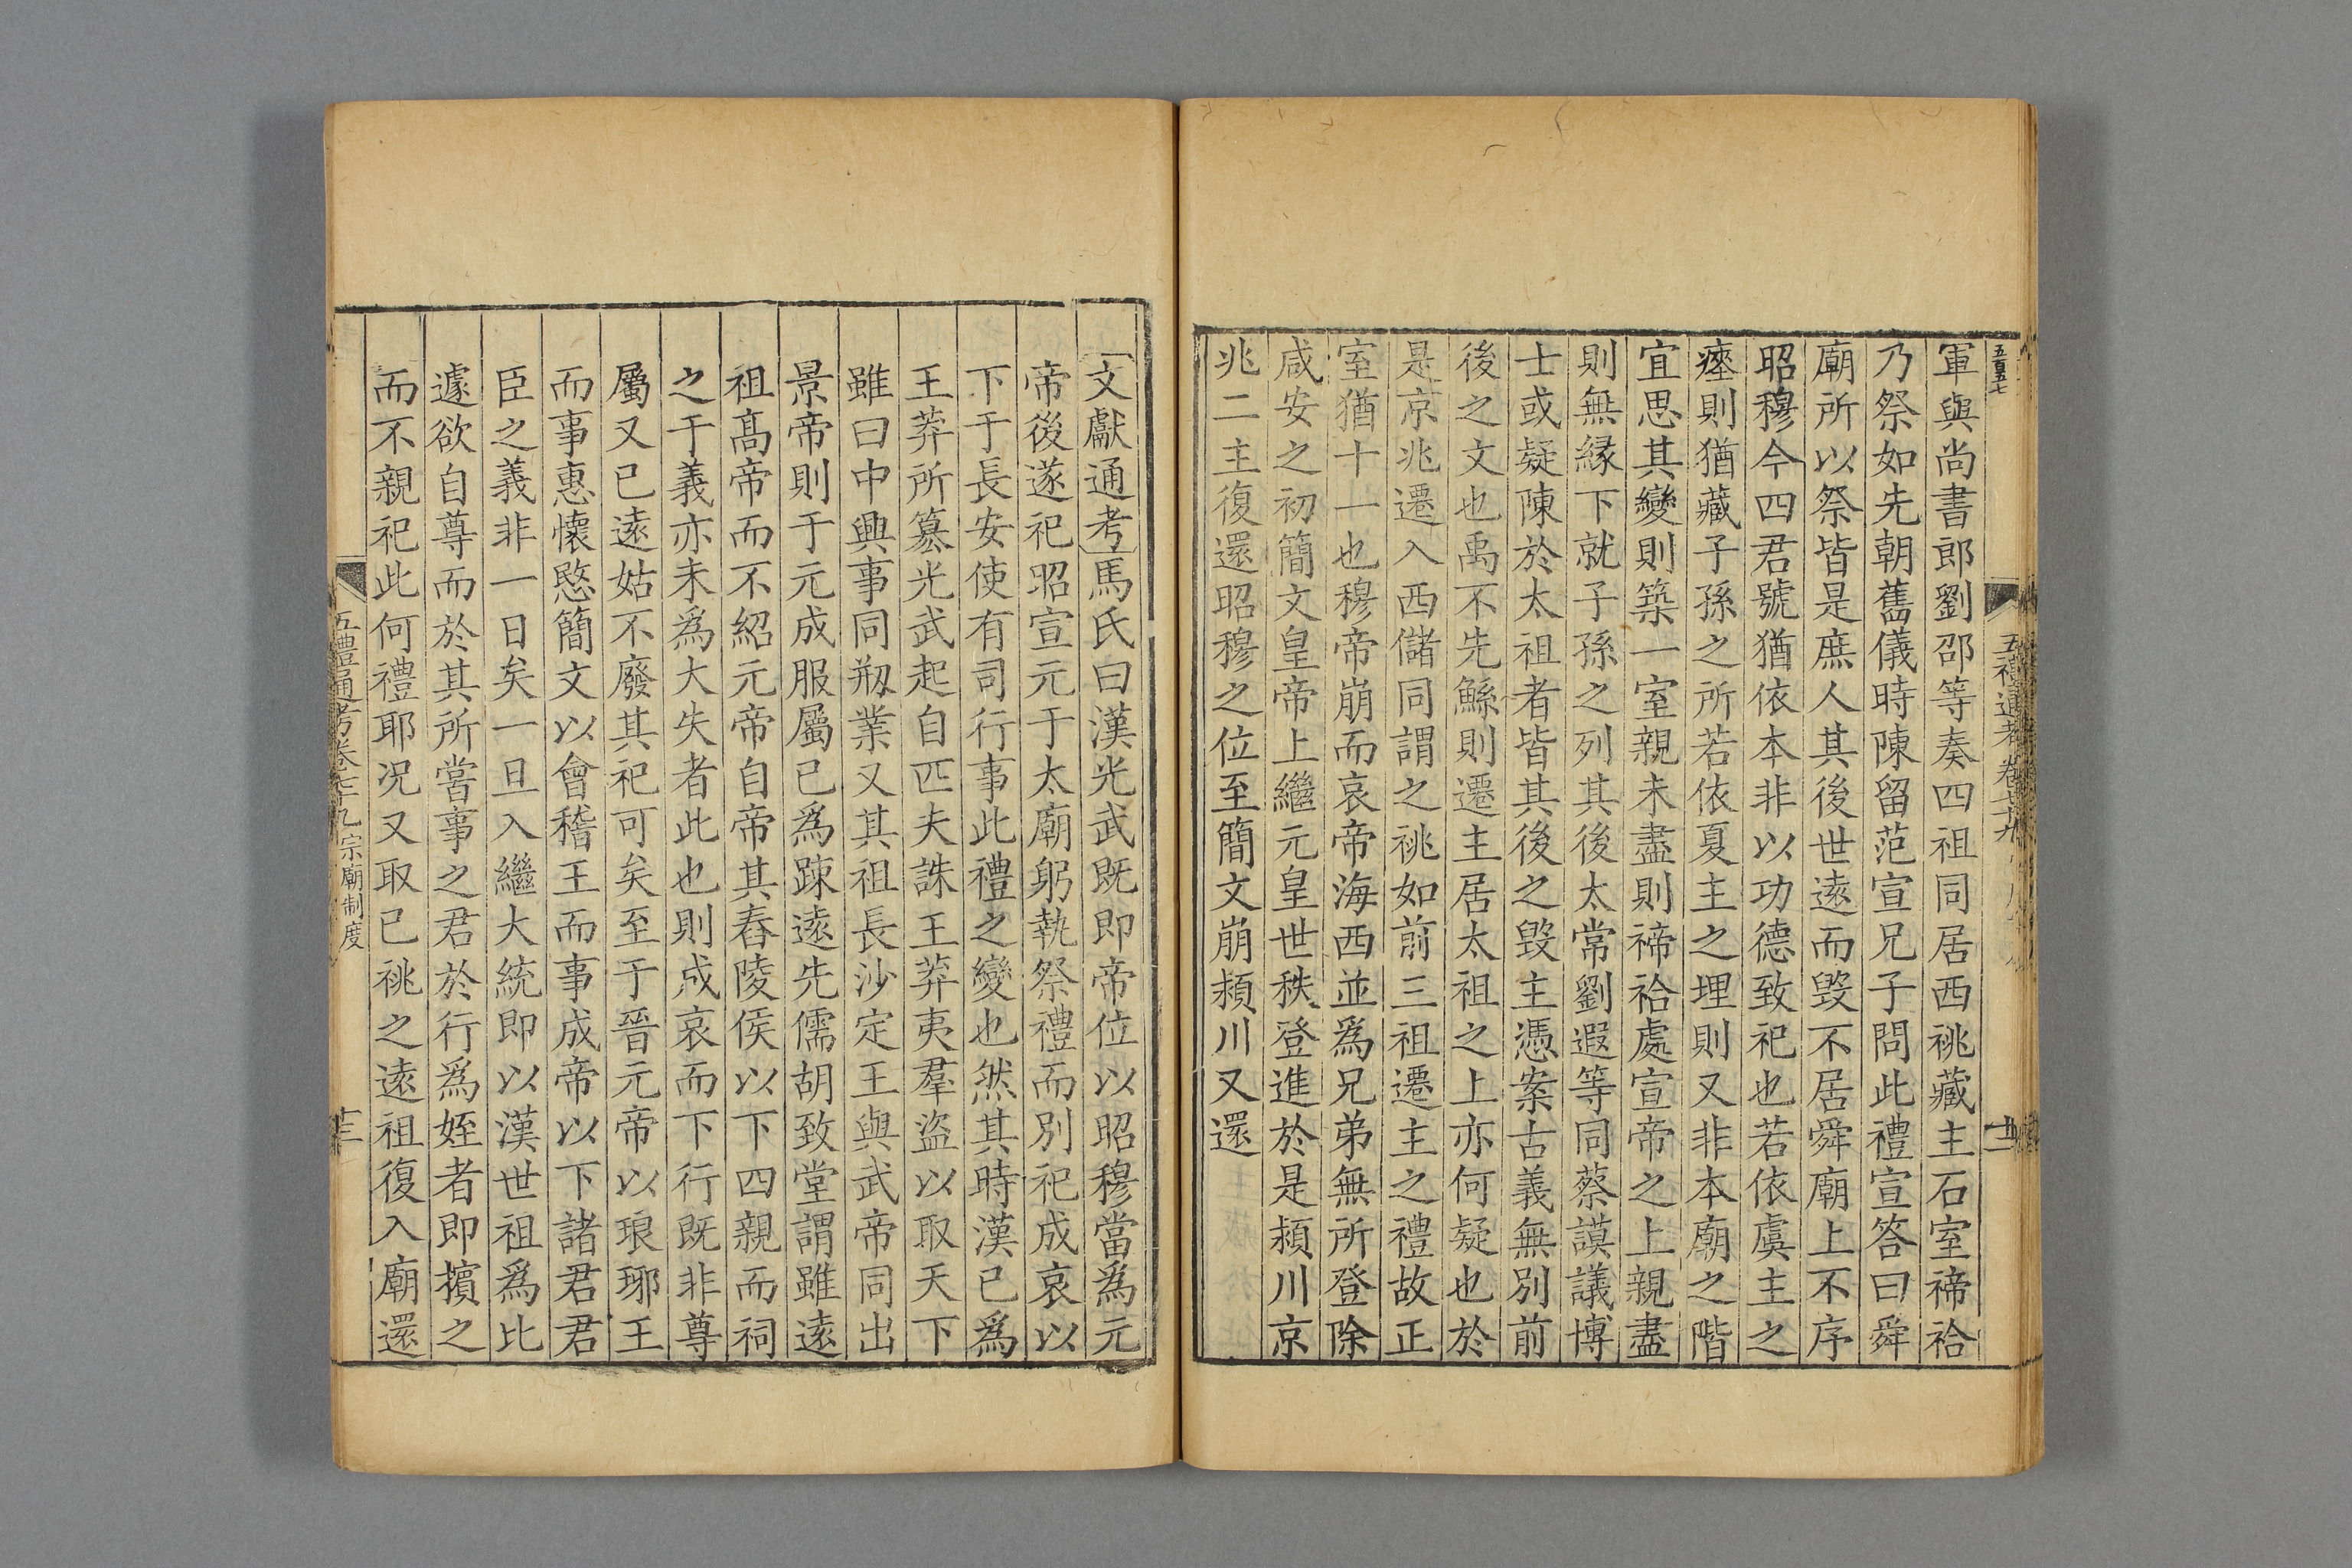 五百五七
軍與尚書郎劉邵等奏四祖同居西祧藏主石室禘祫
乃祭如先朝舊儀時陳留范宣兄子問此禮宣答曰舜
廟所以祭皆是庶人其後世遠而毁不居舜廟上不序
昭穆今四君號猶依本非以功德致祀也若依虞主之
瘞則猶藏子孫之所若依夏主之埋則又非本廟之階
宜思其變則築一室親未盡則禘祫處宣帝之上親盡
則無縁下就子孫之列其後太常劉遐等同蔡謨議博
士或疑陳於太祖者皆其後之毁主憑案古義無別前
後之文也禹不先鯀則遷主居太祖之上亦何疑也於
是京兆遷入西儲同謂之祧如前三祖遷主之禮故正
室猶十一也穆帝崩而哀帝海西並爲兄弟無所登除
咸安之初簡文皇帝上繼元皇世秩登進於是潁川京
兆二主復還昭穆之位至簡文崩潁川又還
文獻通考馬氏曰漢光武既即帝位以昭穆當爲元
帝後遂祀昭宣元于太廟躬執祭禮而別祀成哀以
下于長安使有司行事此禮之變也然其時漢已爲
王莽所簒光武起自匹夫誅王莽夷羣盜以取天下
雖曰中興事同剏業又其祖長沙定王與武帝同出
景帝則于元成服屬已爲踈遠先儒胡致堂謂雖遠
祖髙帝而不紹元帝自帝其舂陵侯以下四親而祠
之于義亦未爲大失者此也則成哀而下行既非尊
屬又已遠姑不廢其祀可矣至于晉元帝以琅琊王
而事惠懷愍簡文以會稽王而事成帝以下諸君君
臣之義非一日矣一旦入繼大統即以漢世祖爲比
遽欲自尊而於其所嘗事之君於行爲姪者即擯之
而不親祀此何禮耶况又取已祧之遠祖復入廟還
五禮通考卷七十九宗廟制度
十三